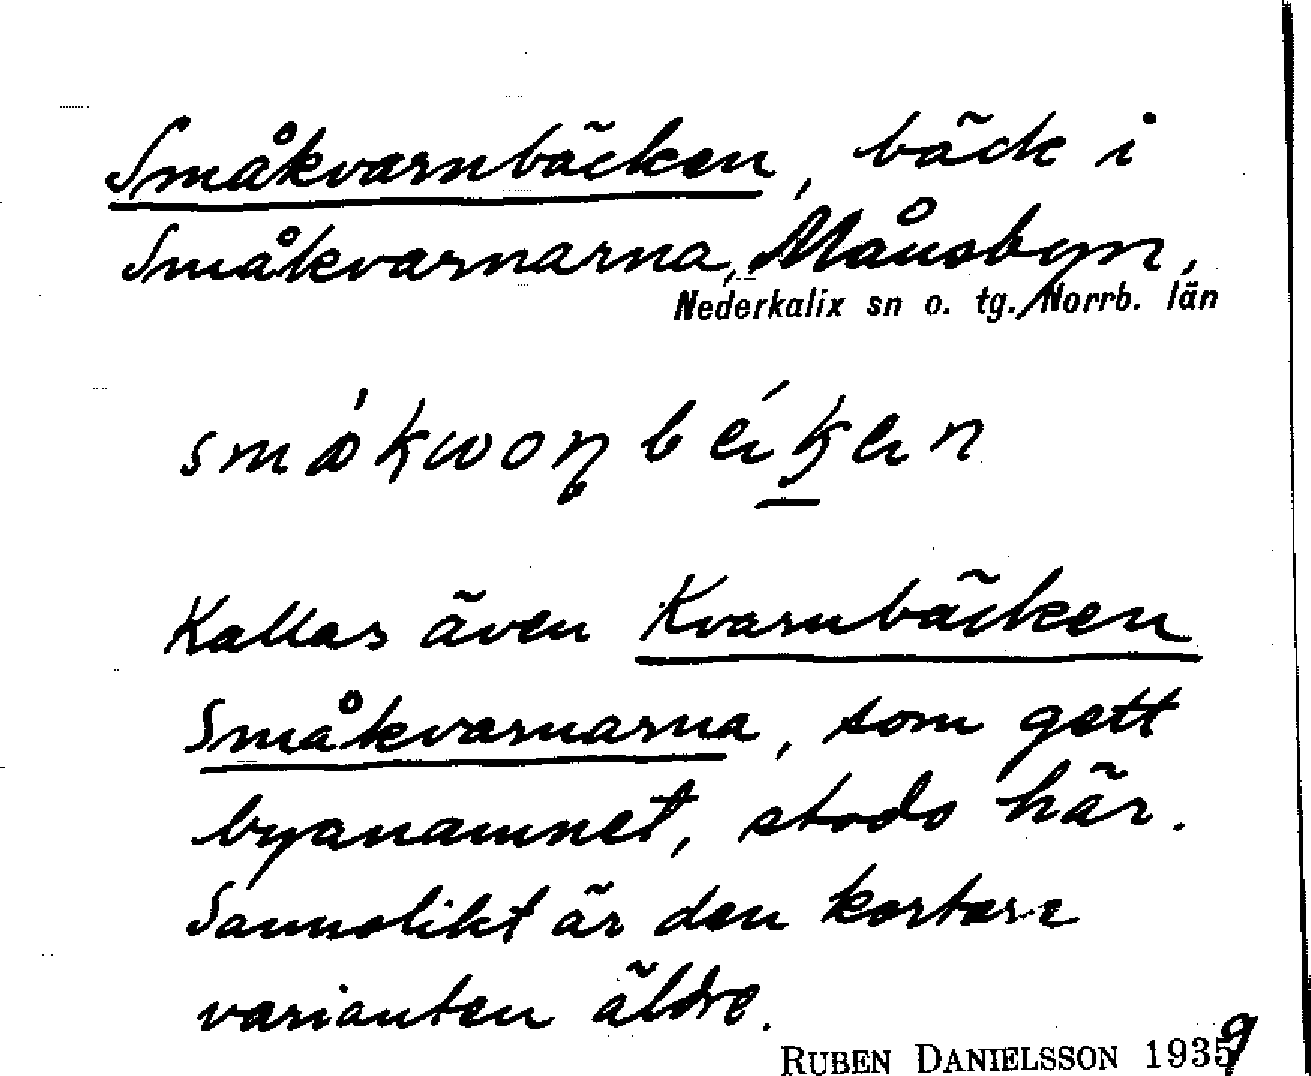 Småkvarnbäcken, bäck i
Småkvarnarna, Månsbyn,
Nederkalix sn o. tg., Norrb. län
Kallas även Kvarnbäcken
Småkvarnarna, som gett
byanamnet, stodo här.
Sannolikt är den kortare
varianten äldre.
RUBEN DANIELSSON 1939